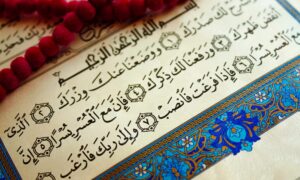 بِسْمِ اللَّهِ الرَّحْمَٰنِ الرَّحِيمِ
نَشْرَحْ لَكَ صَدْرَكَ ۝١ وَوَضَعْنَا عَنكَ وِزْرَكَ ۝٢ الَّذِي
أَنقَضَ ظَهْرَكَ ۝٣ وَرَفَعْنَا لَكَ ذِكْرَكَ ۝٤ فَإِنَّ مَعَ الْعُسْرِ يُسْرًا ۝٥ إِنَّ
الْعُسْرِ يُسْرًا ۝٦ فَإِذَا فَرَغْتَ فَانصَبْ ۝٧ وَإِلَىٰ رَبِّكَ فَارْغَب